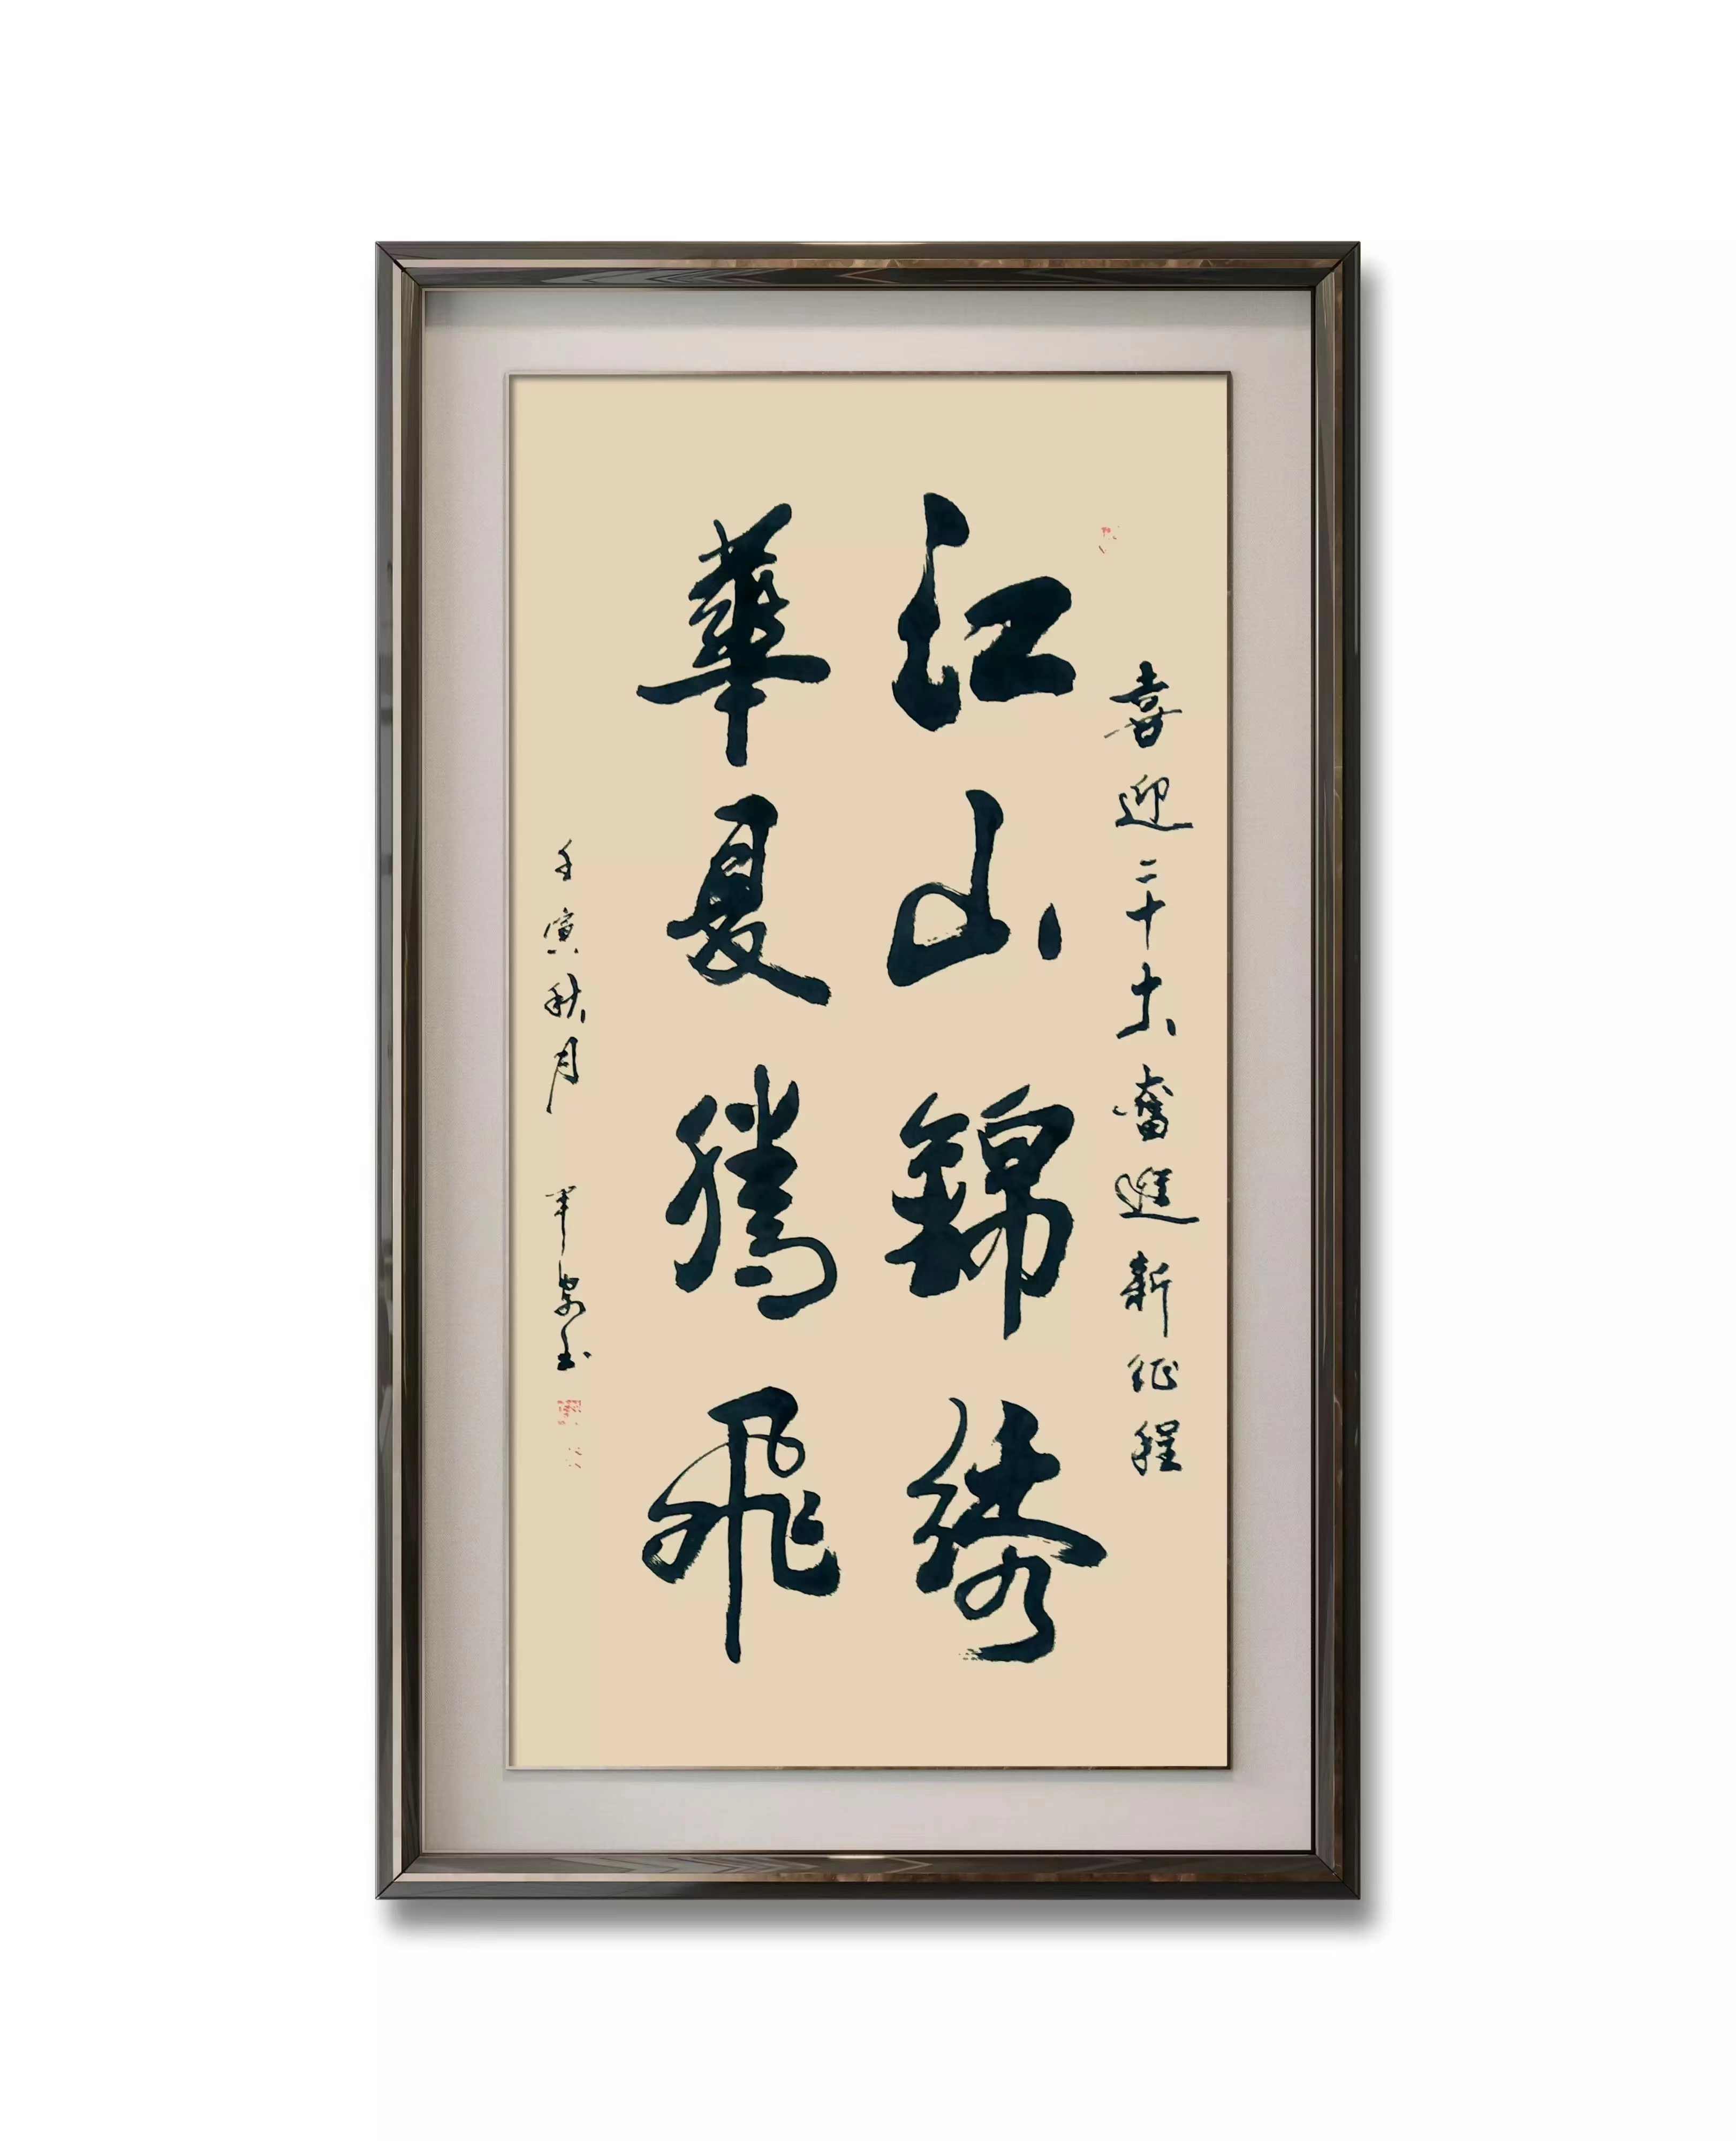 喜迎二十大奮進新征程
江山錦绣
華夏騰飛
壬寅秋月